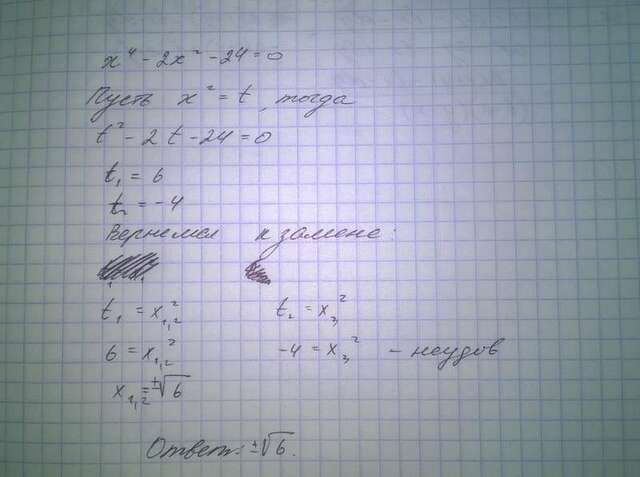 x⁴ - 2x² - 24 = 0
Пусть x² = t, тогда
t² - 2t - 24 = 0
t₁ = 6
t₂ = -4
Вернемся к замене:
t₁ = x₁,₂² t₂ = x₃²
6 = x₁,₂² -4 = x₃² - неудов
x₁,₂ = ±√6
Ответ: ±√6.